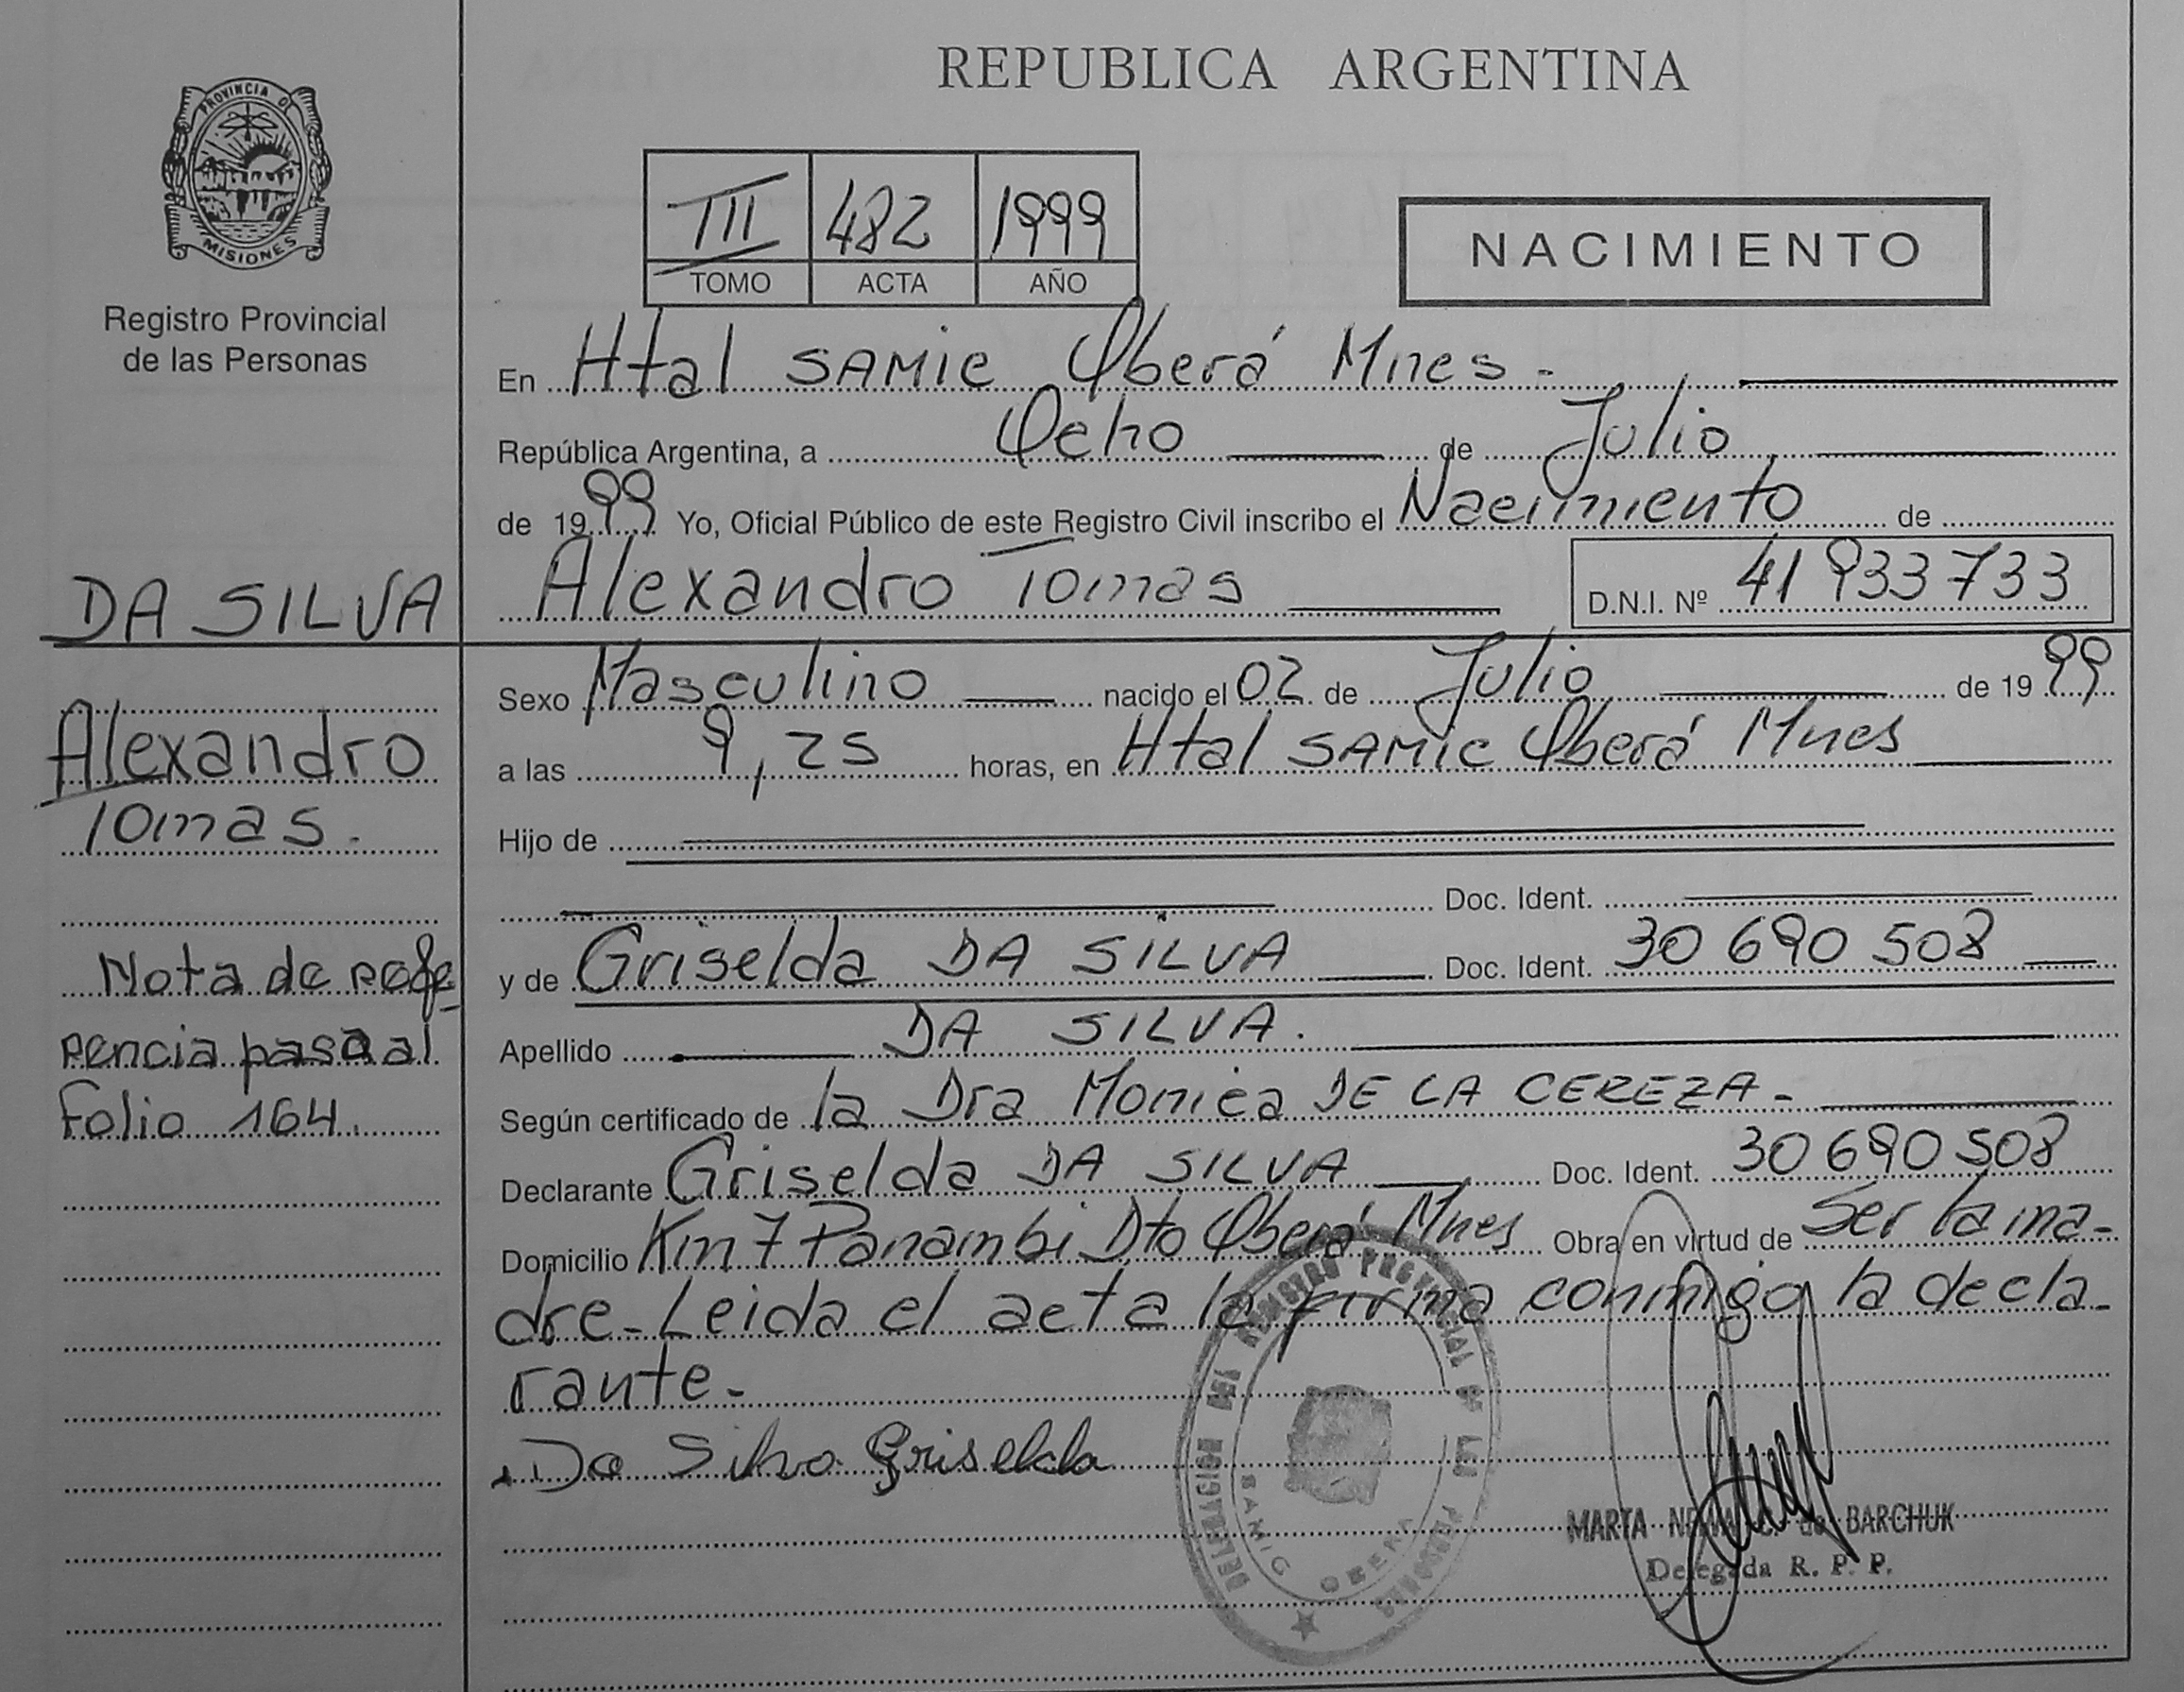 REPUBLICA ARGENTINA
PROVINCIA DE
MISIONES
Registro Provincial
de las Personas
III 482 1999
TOMO ACTA AÑO
NACIMIENTO
En Htal SAMIC Oberá Mnes -
República Argentina, a Ocho de Julio
de 1999 Yo, Oficial Público de este Registro Civil inscribo el Nacimiento de
Alexandro Tomas D.N.I. Nº 41 933 733
Sexo Masculino nacido el 02 de Julio de 1999
a las 9,25 horas, en Htal SAMIC Oberá Mnes
Hijo de
Doc. Ident.
y de Griselda DA SILVA Doc. Ident. 30 690 508
Apellido DA SILVA.
Según certificado de la Dra Monica DE LA CEREZA -
Declarante Griselda DA SILVA Doc. Ident. 30 690 508
Domicilio Km 7 Panambi Dto Oberá Mnes Obra en virtud de Ser la ma-
dre - Leida el acta la firma conmigo la decla-
rante -
Da Silva Griselda
DA SILVA
Alexandro
Tomas.
Nota de refe-
rencia pasa al
Folio 164.
REGISTRO PROVINCIAL DE LAS PERSONAS
SAMIC OBERA
MARTA C. de BARCHUK
Delegada R. P. P.